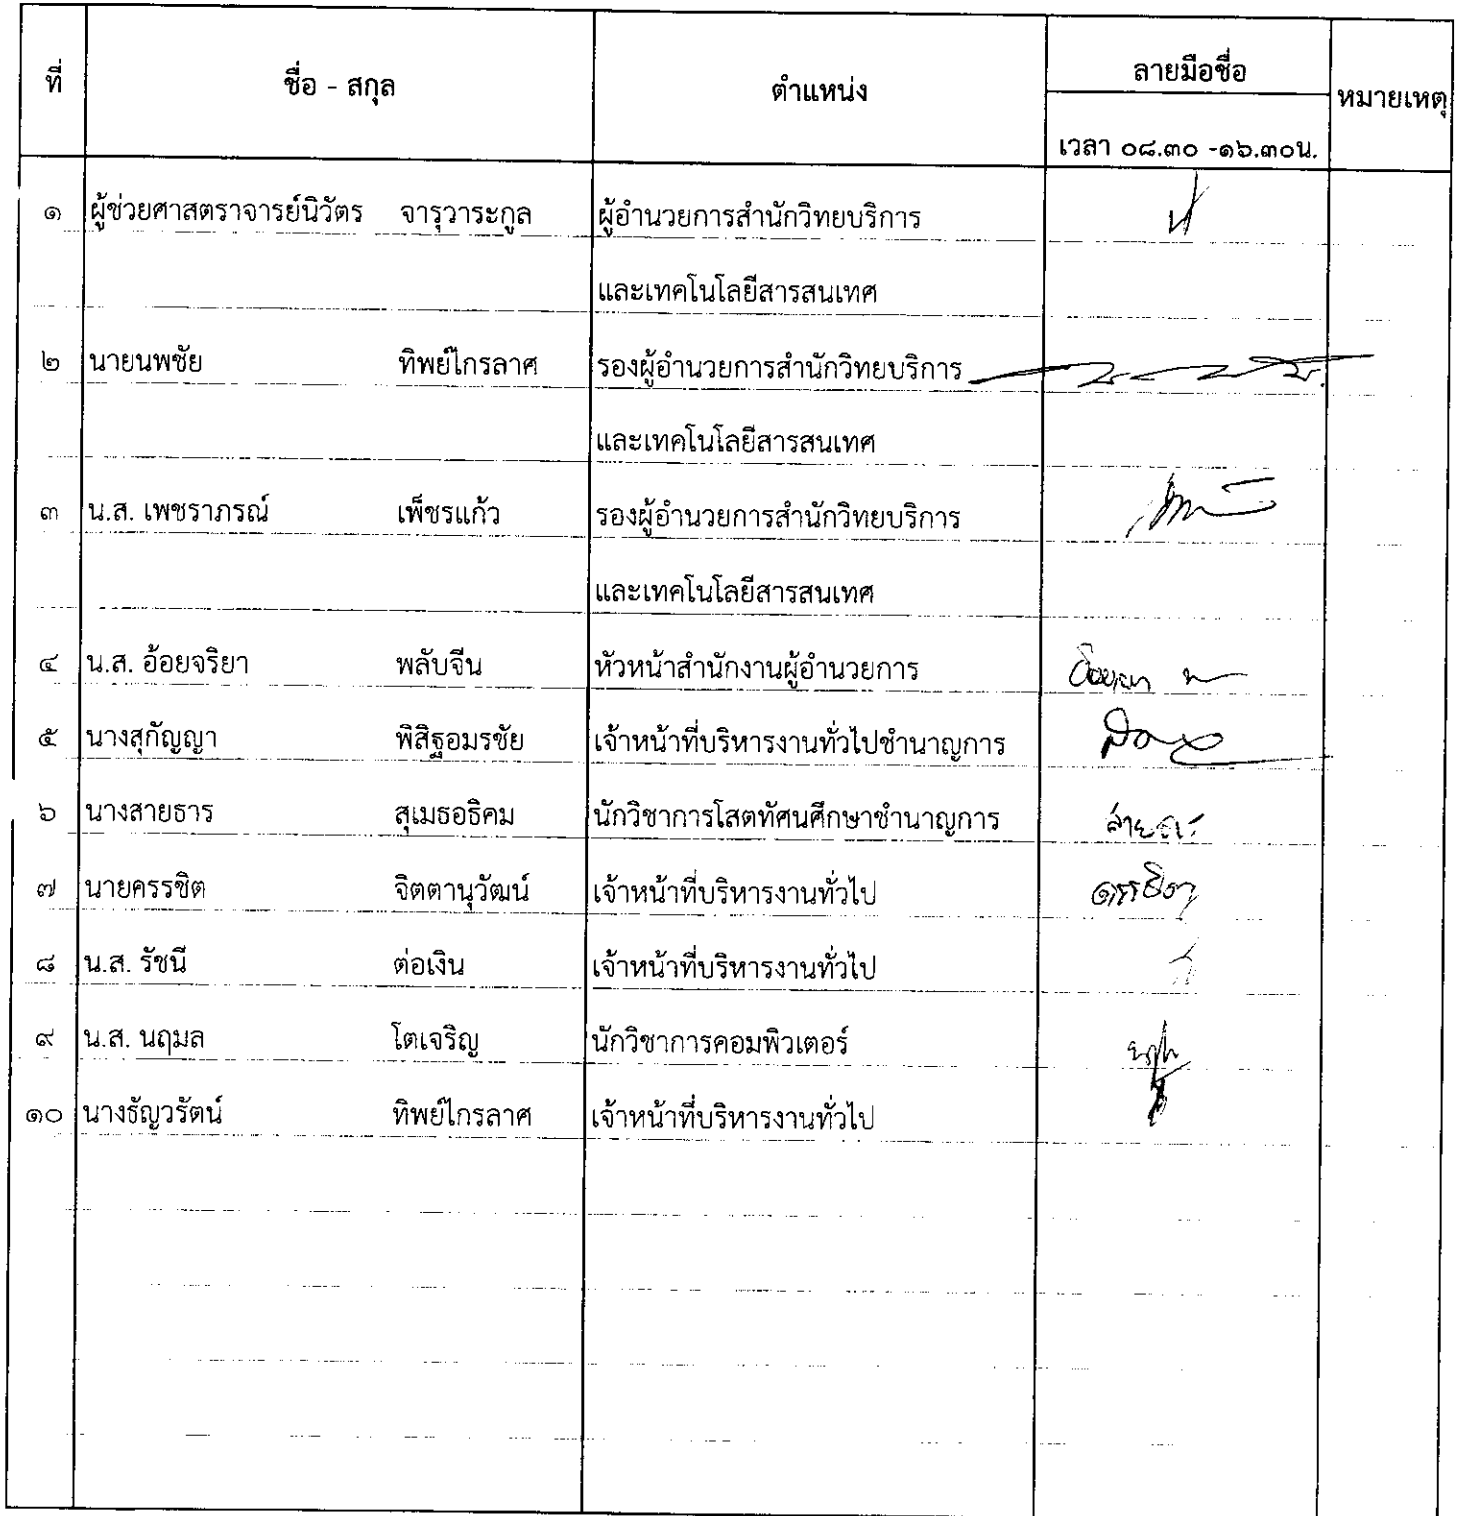 ที่ ชื่อ - สกุล ตำแหน่ง ลายมือชื่อ หมายเหตุ
เวลา ๐๘.๓๐ -๑๖.๓๐น.
๑ ผู้ช่วยศาสตราจารย์นิวัตร จารุวาระกูล ผู้อำนวยการสำนักวิทยบริการ
และเทคโนโลยีสารสนเทศ
๒ นายนพชัย ทิพย์ไกรลาศ รองผู้อำนวยการสำนักวิทยบริการ
และเทคโนโลยีสารสนเทศ
๓ น.ส. เพชราภรณ์ เพ็ชรแก้ว รองผู้อำนวยการสำนักวิทยบริการ
และเทคโนโลยีสารสนเทศ
๔ น.ส. อ้อยจริยา พลับจีน หัวหน้าสำนักงานผู้อำนวยการ
๕ นางสุกัญญา พิสิฐอมรชัย เจ้าหน้าที่บริหารงานทั่วไปชำนาญการ
๖ นางสายธาร สุเมธอธิคม นักวิชาการโสตทัศนศึกษาชำนาญการ
๗ นายครรชิต จิตตานุวัฒน์ เจ้าหน้าที่บริหารงานทั่วไป
๘ น.ส. รัชนี ต่อเงิน เจ้าหน้าที่บริหารงานทั่วไป
๙ น.ส. นฤมล โตเจริญ นักวิชาการคอมพิวเตอร์
๑๐ นางธัญวรัตน์ ทิพย์ไกรลาศ เจ้าหน้าที่บริหารงานทั่วไป